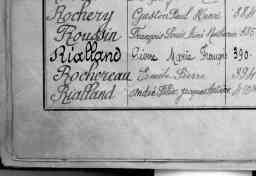 Rochery Gaston Paul Henri 384
Roussin François Louis René
Rialland Pierre Marie François 390
Rochereau Emile Pierre 394
Rialland André Félix Jacques